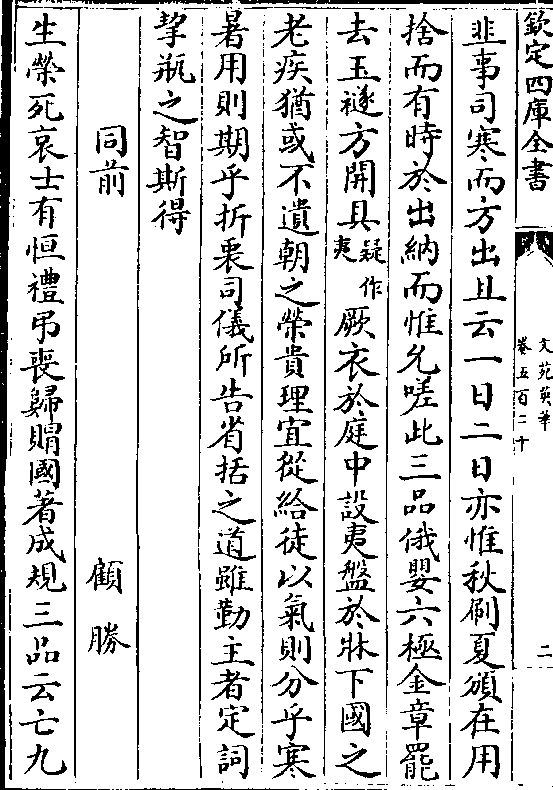 欽定四庫全書
文苑英華
卷五百二十
二
韭事司寒而方出且云一日二日亦惟秋刷夏頒在用
捨而有時於出納而惟允嗟此三品俄嬰六極金章罷
去玉襚方開具疑作夷厥衣於庭中設夷盤於牀下國之
老疾猶或不遺朝之榮貴理宜從給徒以氣則分乎寒
暑用則期乎折衷司儀所告省括之道雖勤主者定詞
挈瓶之智斯得
同前 顧勝
生榮死哀士有恒禮弔喪歸賵國著成規三品云亡九